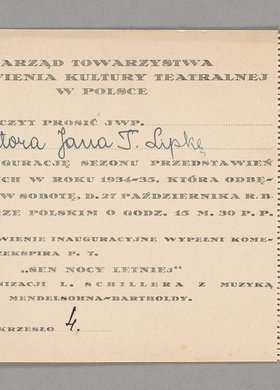 ARZĄD TOWARZYSTWA
WIENIA KULTURY TEATRALNEJ
W POLSCE
CZYT PROSIĆ JWP.
tora Jana T. Lipkę
GURACJĘ SEZONU PRZEDSTAWIEŃ
YCH W ROKU 1934-35, KTÓRA ODBĘ-
W SOBOTĘ, D. 27 PAŹDZIERNIKA R. B.
RZE POLSKIM O GODZ. 15 M. 30 P. P.
WIENIE INAUGURACYJNE WYPEŁNI KOME-
ZEKSPIRA P. T.
„SEN NOCY LETNIEJ“
NIZACJI L. SCHILLERA Z MUZYKĄ
MENDELSOHNA-BARTHOLDY.
KRZESŁO 4.